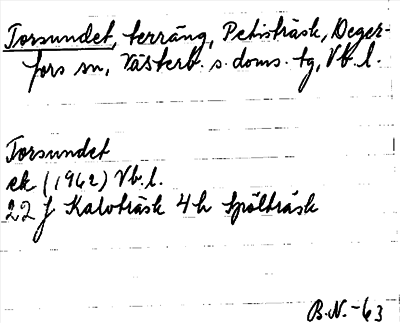 Torsundet, terräng, Petisträsk, Deger-
fors sn, Västerb. s. doms. tg, Vb. l.
Torsundet
ek (1962) Vb. l.
22 J Kalvträsk 4h Spölträsk
B.N.-63